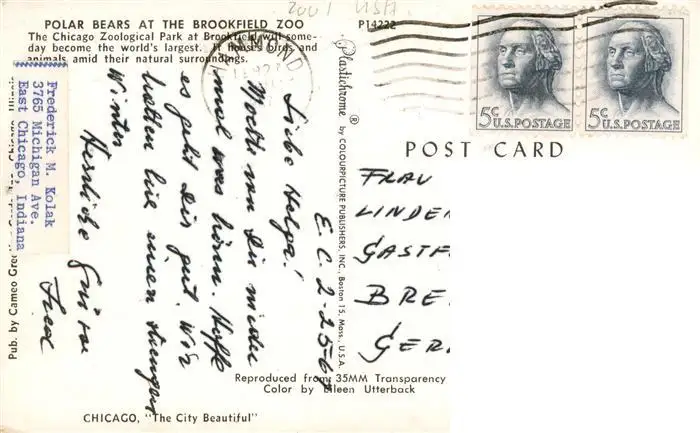 2001 USA
POLAR BEARS AT THE BROOKFIELD ZOO
The Chicago Zoological Park at Brookfield will some-
day become the world's largest. It houses birds and
animals amid their natural surroundings.
P14222
5c U.S. POSTAGE
5c U.S. POSTAGE
POST CARD
Plastichrome ® by COLOURPICTURE PUBLISHERS, INC., Boston 15, Mass., U.S.A.
Frederick M. Kolak
3765 Michigan Ave.
East Chicago, Indiana
E.C. 2-25-64
Liebe Helga!
Möchte von Dir wieder
mal was hören. Hoffe
es geht Dir gut. Wir
hatten hier einen strengen
Winter
Herzliche Grüsse
Fred
FRAU
LINDE
GASTH
BRE
GER
Pub. by Cameo
Reproduced from 35MM Transparency
Color by Eileen Utterback
CHICAGO, "The City Beautiful"